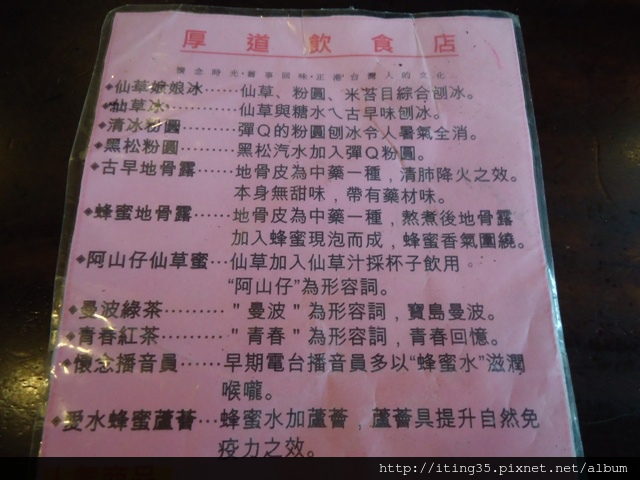 厚道飲食店
懷念時光·舊事回味·正港台灣人的文化
◆仙草娘娘冰……仙草、粉圓、米苔目綜合刨冰。
◆仙草冰……………仙草與糖水ㄟ古早味刨冰。
◆清冰粉圓………彈Q的粉圓刨冰令人暑氣全消。
◆黑松粉圓………黑松汽水加入彈Q粉圓。
◆古早地骨露……地骨皮為中藥一種,清肺降火之效。
本身無甜味,帶有藥材味。
◆蜂蜜地骨露……地骨皮為中藥一種,熬煮後地骨露
加入蜂蜜現泡而成,蜂蜜香氣圍繞。
◆阿山仔仙草蜜…仙草加入仙草汁採杯子飲用
“阿山仔”為形容詞。
◆曼波綠茶………"曼波"為形容詞,寶島曼波。
◆青春紅茶………"青春"為形容詞,青春回憶。
◆懷念播音員……早期電台播音員多以“蜂蜜水”滋潤
喉嚨。
◆愛水蜂蜜蘆薈…蜂蜜水加蘆薈,蘆薈具提升自然免
疫力之效。
http://iting35.pixnet.net/album